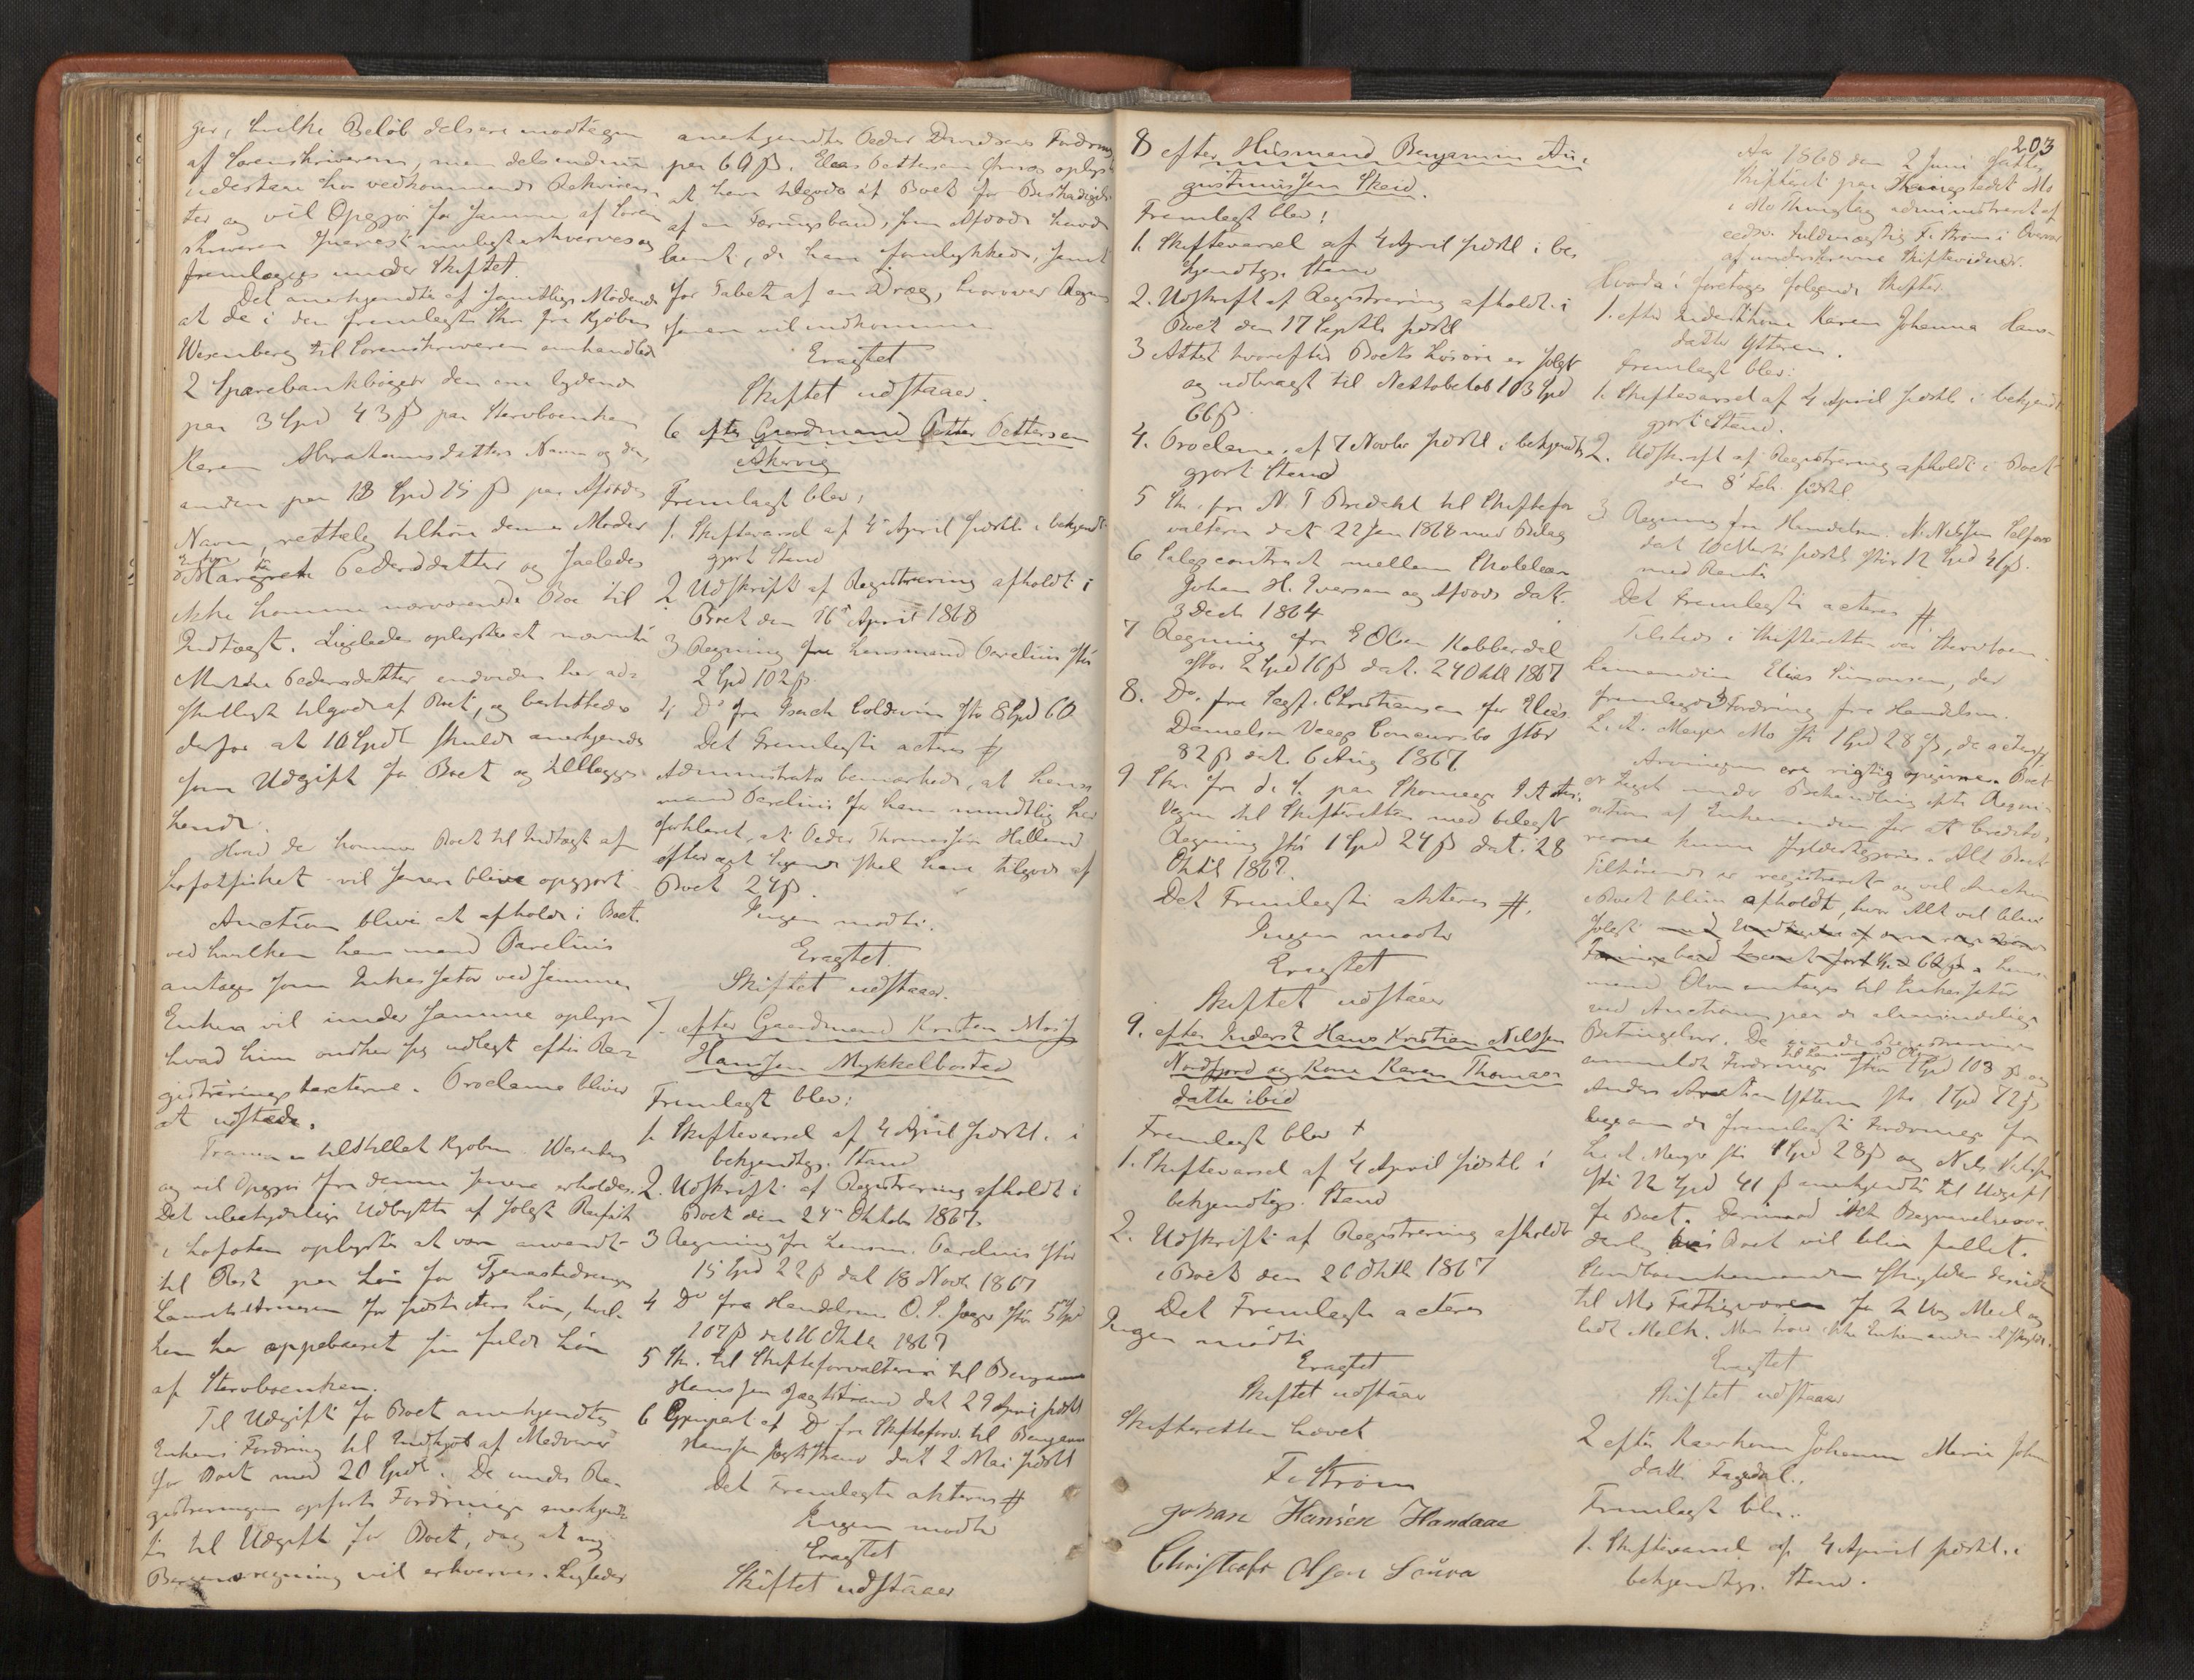 ger, hvilke Beløb dels ere modtagne
af Sorenskriveren, men dels endnu
indestaae hos vedkommende Rekvirenter
ter og vil Opgjør for samme af Soren
skriveren snarest muligt erhverves og
fremlægges under Skiftet.
Det anerkjendtes af samtlige Mødende
at de i den fremlagte Skr. fra Kjøbm
Wesenberg til Sorenskriveren omhandlede
2 Sparebankbøger den ene lydende
paa 3 Spd 43 ß paa Stervboenken
Karen Abrahamsdatters Navn og den
anden paa 18 Spd 25 ß paa Afdødes
Navn, rettelig tilhøre dennes Moder
Margreth Pedersdatter og saaledes
ikke komme nærværende Bo til
Indtægt. Ligeledes oplystes at nævnte
Pedersdatter endvidere har ad-
skilligt tilgode af Boet, og besluttedes
derfor at 10 Spdl skulde anerkjendes
som Udgift for Boet og tillægges
hende.
Hvad der kommer Boet til Indtægt af
Lofotfisket vil senere blive opgjort
Auction bliver at afholde i Boet.
ved hvilken Lensmand Parelius
antages som Inkassator ved samme.
Enken vil under samme oplyse
hvad hun ønsker sig udlagt efter Re-
gistreringstaxterne. Proclama bliver
at udstæde.
Tranen er tilstillet Kjøbm. Wesenberg
og vil Opgjør fra denne senere erholdes.
Det ubetydelige Udbytte af solgt Raafisk
i Lofoten oplystes at være anvendt
til Rest paa Løn for Tjenestedrengen
for sidste Aars Løn, hvil-
ken har oppebaaret sin fulde Løn
af Stervboenken.
Til Udgift for Boet anerkjendtes
Enkens Fordring til Indkjøb af Madvarer
for Boet med 20 Spdl. De under Re-
gistreringen opførte Fordringer anerkjend-
tes til Udgift for Boet, dog at ny
Bergensregning vil erhverves. Ligeledes
anerkjendtes Peder Fordring
paa 69 ß. Elias Pettersen oplyste
at have tilgode af Boet for Beskadigelse
af en Færingsbaad, som Afdøde havde
laant, da han forulykkede, samt
for Tabet af en Dræg, hvorover Regning
senere vil indkomme
Eragtet
Skiftet udstaaer.
6 efter Gaardmand Petter Pettersen
Akervig
Fremlagt blev:
1. Skiftevarsel af 4de April sidstl. i bekjendt-
gjort Stand
2 Udskrift af Registrering afholdt i
Boet den 16de April 1868
3 Regning fra Lensmand Parelius stor
2 Spd 102 ß.
4 Do fra Isach Coldevin stor 8 Spd 60
Det Fremlagte acteres #
Administrator bemærkede, at Lens-
mand Parelius for ham mundtlig har
forklaret, at Peder Thomassen Halland
efter eget Sigende skal have tilgode af
Boet 24 ß.
Ingen mødte.
Eragtet.
Skiftet udstaaer.
7. efter Gaardmand Kristen Mois
Hanssen Mykkelbostad
Fremlagt blev:
1. Skiftevarsel af 4 April sidstl. i
bekjendtgj. Stand
2. Udskrift af Registrering afholdt i
Boet den 24de Oktober 1867.
3 Regning fra Lensm. Parelius stor
15 Spd 22 ß dat 18 Novb 1867
4 Do fra Handelsm. O. S. Jæger stor 5 Spd
107 ß dat 16 Oktb 1867
5 Skr. til Skifteforvalteren til Benjamin
Hanssen Jægtstrand dat 29 April sidstl
6 Gjenpart af Do fra Skifteforv. til Benjamin
Hanssen Jægtstrand dat 2 Mai sidstl
Det Fremlagte akteres #
Ingen mødte
Eragtet
Skiftet udstaaer
8 efter Husmand Benjamin Au-
gustinussen Skeid.
Fremlagt blev:
1. Skiftevarsel af 4 April sidstl. i be-
kjendtgj. Stand
2. Udskrift af Registrering afholdt i
Boet den 17 Septb. sidstl
3 Attest hvorefter Boets Løsøre er solgt
og udbragt til Nettobeløb 103 Spd
66 ß.
4. Proclama af 7 Novbr sidstl i bekjendt-
gjort Stand
5 Skr. fra N. T. Bredahl til Skiftefor
valteren dat 22 Jan 1868 med Bilag
6 Salgscontract mellem Skolelærer
Johan H. Iversen og Afdøde dat.
3 Decb 1864
7 Regning fra E Olsen Kobberdal
stor 2 Spd 16 ß dat. 24 Oktb 1867
8. Do. fra Sagf. Christiansen for Elias
Danielsen Concursbo stor
82 ß dat. 6 Aug 1867.
9 Skr. fra d. S. paa
Vegne til Skifteretten med bilagt
Regning stor 1 Spd 24 ß dat. 28
Oktb 1867.
Det Fremlagte akteres #.
Ingen mødte
Eragtet
Skiftet udstaaer
9. efter Inderst Hans Kristian Nilssen
Nordfjord og Kone Karen Thomas-
datter ibid
Fremlagt blev +
1. Skiftevarsel af 4 April sidstl i
bekjendtgj. Stand
2. Udskrift af Registrering afholdt
i Boet den 26 Oktb 1867
Det Fremlagte acteres
Ingen mødte
Eragtet
Skiftet udstaaer
Skifteretten hævet
F. Strøm
Johan Hansen Handaae
Christofr Olsen Saura
203
Aar 1868 den 2 Juni sattes
Skifteret paa Thingstedet Mo
i Mo Thinglag administreret af
eedsv. Fuldmægtig F. Strøm i Overvær
af underskrevne Skiftevidner.
Hvorda foretoges følgende Skifter.
1. efter Inderstkone Karen Johanna Hans-
datter Ytteren.
Fremlagt blev:
1. Skiftevarsel af 4 April sidstl i bekjendt
gjort Stand.
2. Udskrift af Registrering afholdt i Boet
den 8 Feb. sidstl
3 Regning fra Handelsm. N. Nilssen Selfors
dat 10 Marts sidstl stor 12 Spd 41 ß.
med Renter
Det Fremlagte acteres #
Tilstede i Skifteretten var Stervboen-
kemanden Elias Simonsen, der
fremlagde 3 Fordring fra Handelsm.
L. A. Meyer Mo stor 1 Spd 28 ß, der acteres #.
Arvingerne ere rigtig opgivne. Boet
er taget under Behandling efter Reqvi-
sition af Enkemanden for at Credito-
rerne kunne fyldestgjøres. Alt Boet
Tilhørende er registreret og vil Auction
i Boet blive afholdt, hvor Alt vil blive
solgt. Lens-
mand Olsen antages til Inkassator
ved Auctionen paa de almindelige
Betingelser. De under Registreringen
anmeldte Fordringer til Lensmand Olsen stor 1 Spd 108 ß og
Anders Ytteren stor 1 Spd 72 ß,
ligesom de fremlagte Fordringer fra
L. A. Meyer stor 1 Spd 28 ß og Nils Nilssen
stor 12 Spd 41 ß anerkjendtes til Udgift
for Boet.
Boet vil blive fallit.
Stervboenkemanden skylder desuden
til Mo Fattigvæsen for 2 Vog Meel og
lidt Melk.
Eragtet
Skiftet udstaaer
2 efter Kaarkone Johanna Marie Johns-
datter Fagerdal.
Fremlagt blev.
1. Skiftevarsel af 4 April sidstl. i
bekjendtgj. Stand.